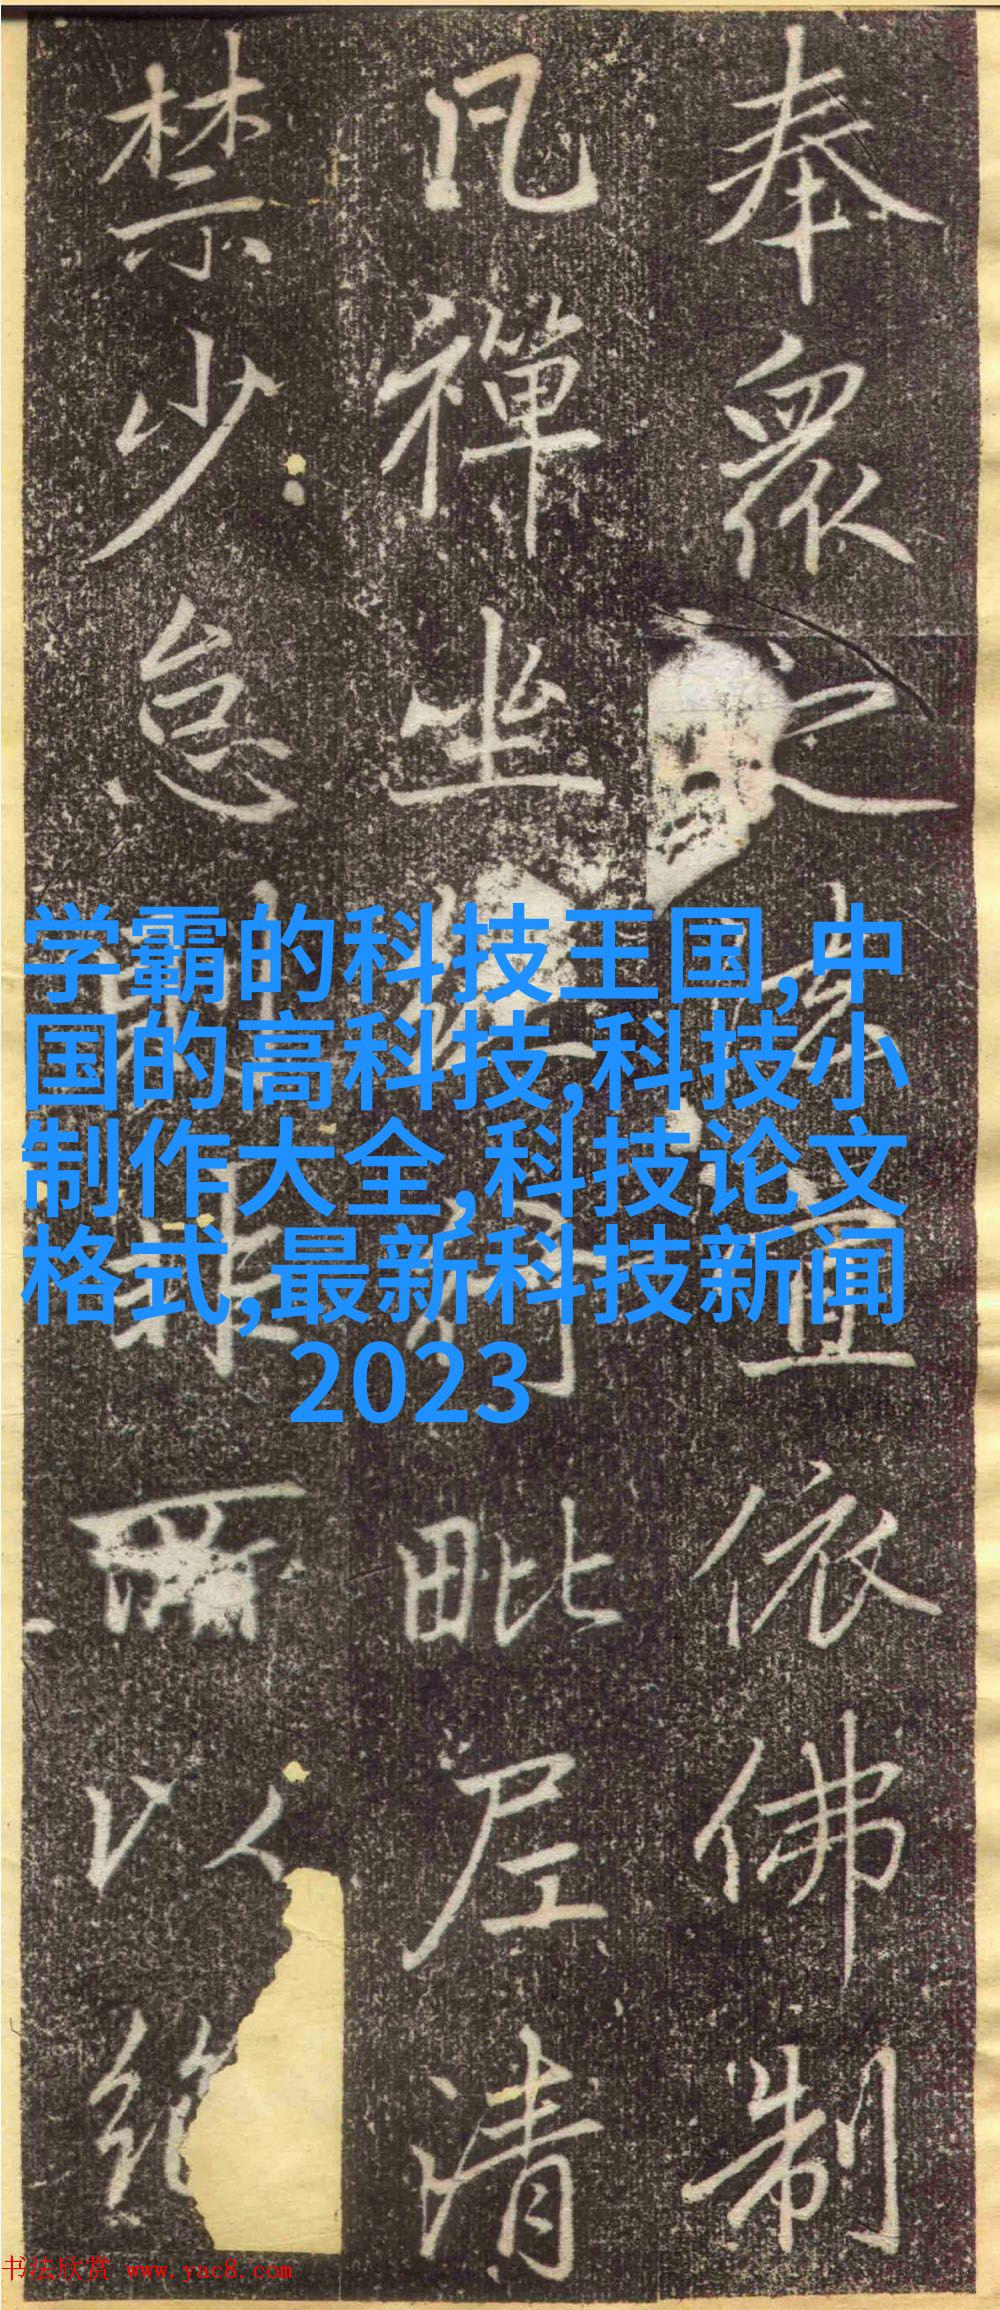 奉衆之
宜依佛制
凡禪坐
行毗尼清
禁少怠
以
绝
学霸的科技王国,中
国的高科技,科技小
制作大全,科技论文
格式,最新科技新闻
2023
书法欣赏 www.yac8.com